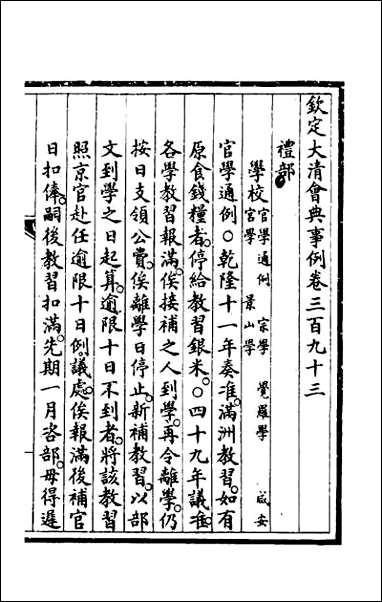 欽定大清會典事例卷三百九十三
禮部
學校 官學通例 宗學 覺羅學 咸安
宮學 景山學
官學通例○乾隆十一年奏准。滿洲教習。如有
原食錢糧者。停給教習銀米。○四十九年議准
各學教習報滿。俟接補之人到學。再令離學。仍
按日支領公費。俟離學日停止。新補教習。以部
文到學之日起算。逾限十日不到者。將該教習
照京官赴任逾限十日例。議處。俟報滿後補官
日扣俸。嗣後教習扣滿。先期一月咨部。毋得遲